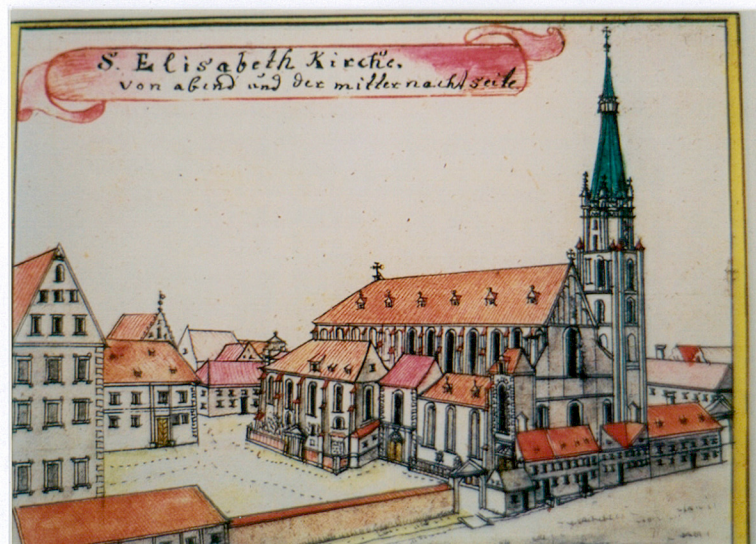 S. Elisabeth Kirche.
von abend und der mitternacht seite